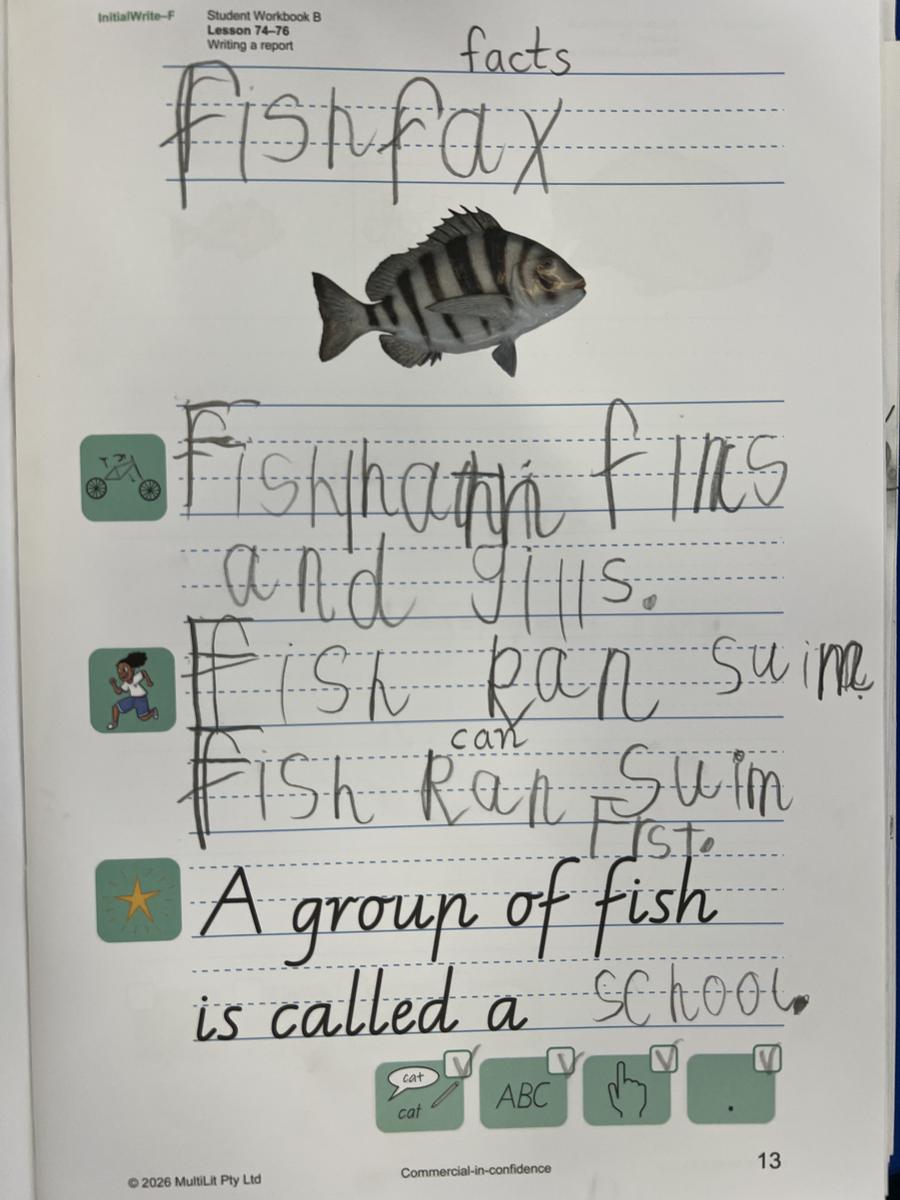 InitialWrite–F
Student Workbook B
Lesson 74–76
Writing a report
facts
Fishfax
Fish fins
and gills.
Fish Ran Swim
can
Fish Ran Swim
Frst.
A group of fish
is called a school.
cat
cat
ABC
.
13
© 2026 MultiLit Pty Ltd
Commercial-in-confidence